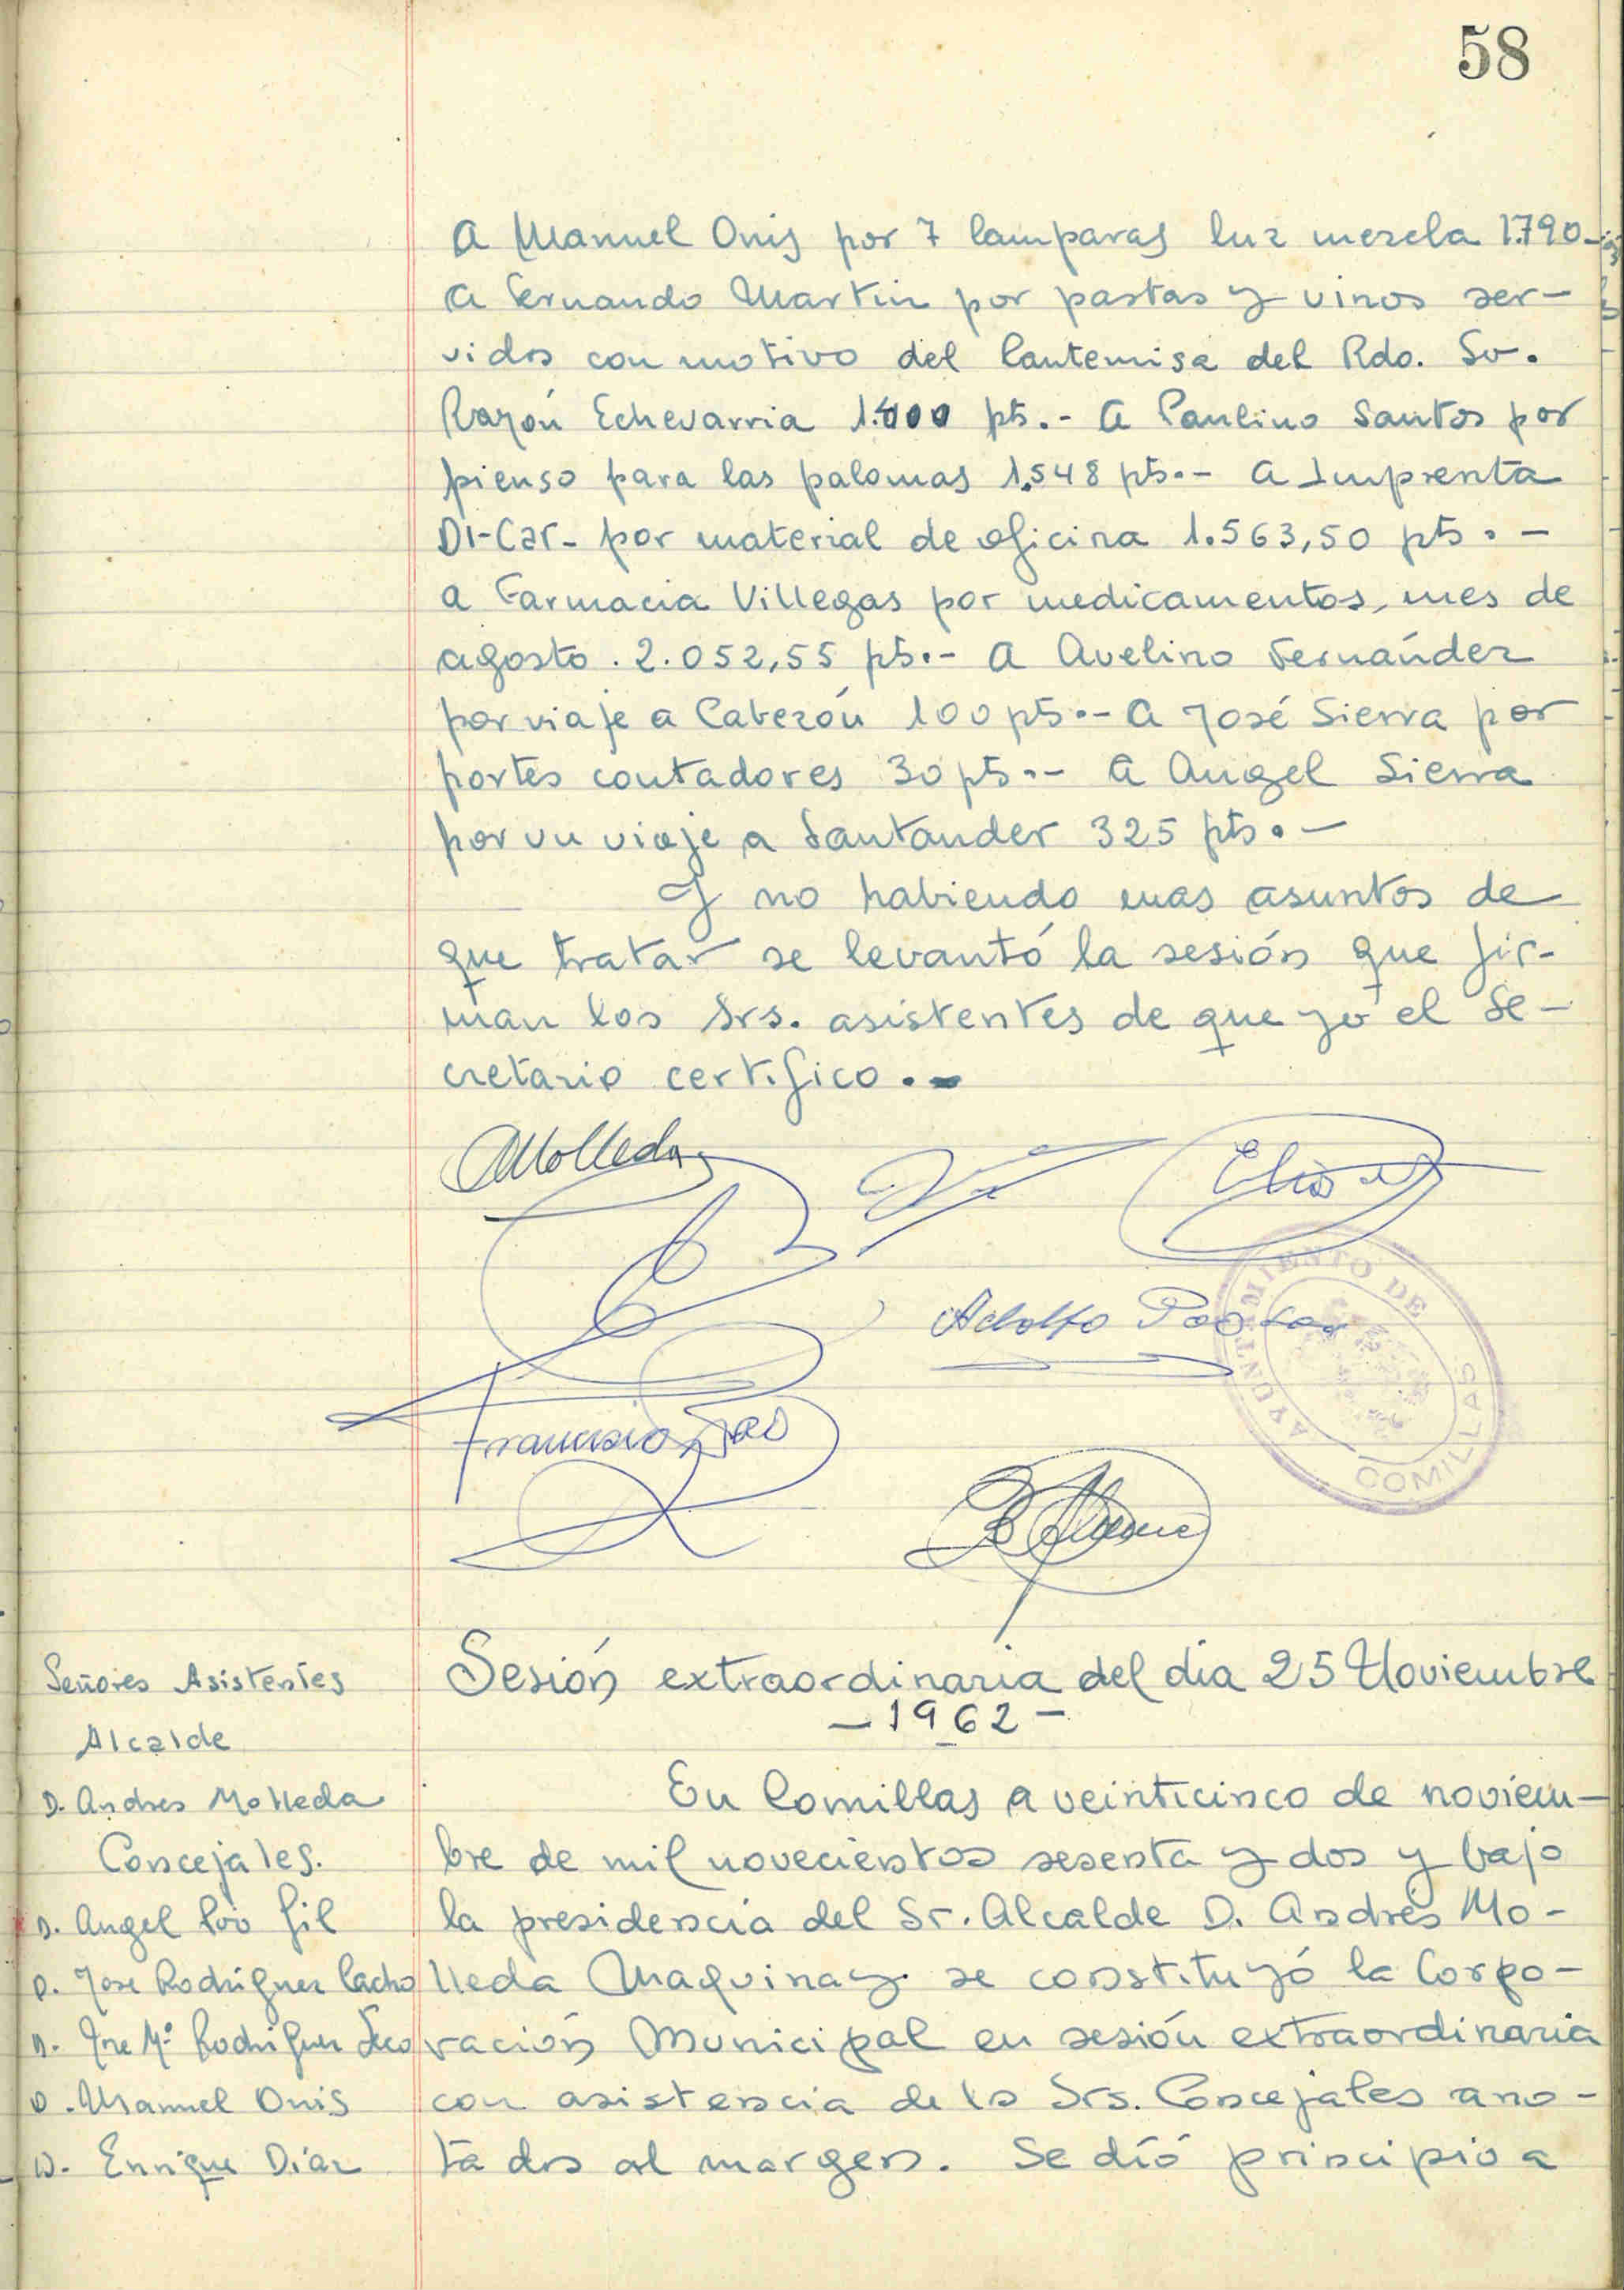 58
A Manuel Onis por 7 lamparas luz mezcla 1.790-
A Fernando Martin por pastas y vinos ser-
vidos con motivo del Cantemisa del Rdo. Sr.
Razón Echevarria 1.400 pts.- A Paulino Santos por
pienso para las palomas 1.548 pts.- A Imprenta
DI-Car- por material de oficina 1.563,50 pts.-
a Farmacia Villegas por medicamentos, mes de
agosto. 2.052,55 pts.- A Avelino Fernández
por viaje a Cabezón 100 pts.- A José Sierra por
portes contadores 30 pts.- A Angel Sierra
por un viaje a Santander 325 pts.-
Y no habiendo mas asuntos de
que tratar se levantó la sesión que fir-
man los Srs. asistentes de que yo el Se-
cretario certifico.-
AMolleda
Adolfo
AYUNTAMIENTO DE COMILLAS
Francisco
Señores Asistentes
Alcalde
D. Andres Molleda
Concejales.
D. Angel Poo Gil
D. Jose Rodriguez Cacho
D. Jose Mª Rodriguez
D. Manuel Onis
D. Enrique Díaz
Sesión extraordinaria del día 25 Noviembre
-1962-
En Comillas a veinticinco de noviem-
bre de mil novecientos sesenta y dos y bajo
la presidencia del Sr. Alcalde D. Andrés Mo-
lleda Maquinay se constituyó la Corpo-
ración Municipal en sesión extraordinaria
con asistencia de los Srs. Concejales ano-
tados al margen. Se dió principio a